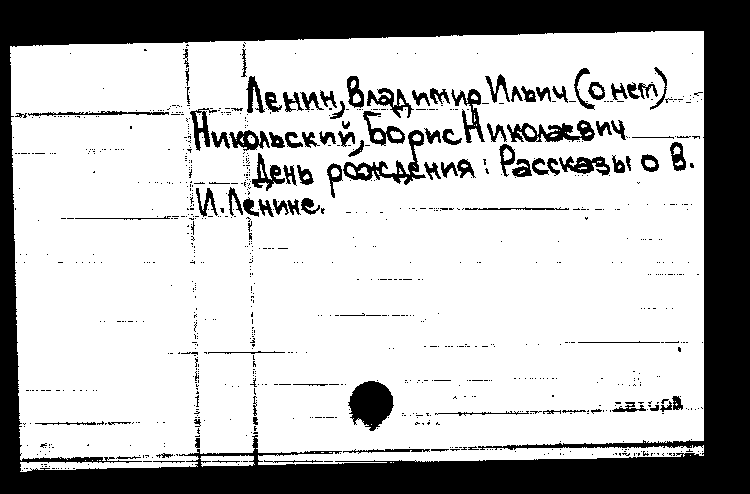 Ленин, Владимир Ильич (о нет)
Никольский, Борис Николаевич
День рождения: Рассказы о В.
И. Ленине.
автора